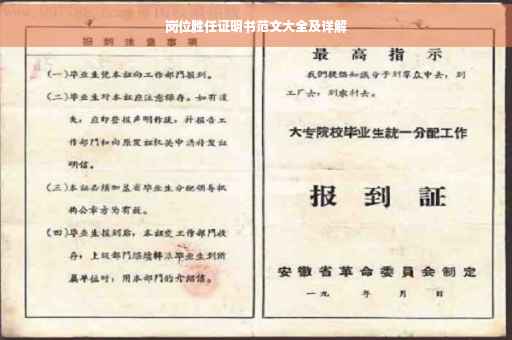 岗位胜任证明书范文大全及详解
报到注意事项
(一)毕业生凭本证向工作部门报到。
(二)毕业生对本证应注意保存。如有遗
失,应即登报声明作废,并报告工
作部门和向原发证机关申请补发证
明信。
(三)本证必须加盖省毕业生分配领导机
构公章方为有效。
(四)毕业生报到后,本证交工作部门收
存;上级部门
毕业生到所
属单位时,用本部门的介绍信。
最高指示
我们提倡知识分子到群众中去,到
工厂去,到农村去。
大专院校毕业生统一分配工作
报到证
安徽省革命委员会制定
一九 年 月 日